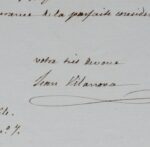 rance de la parfaite consid
votre très devoué
Jean Vilanova